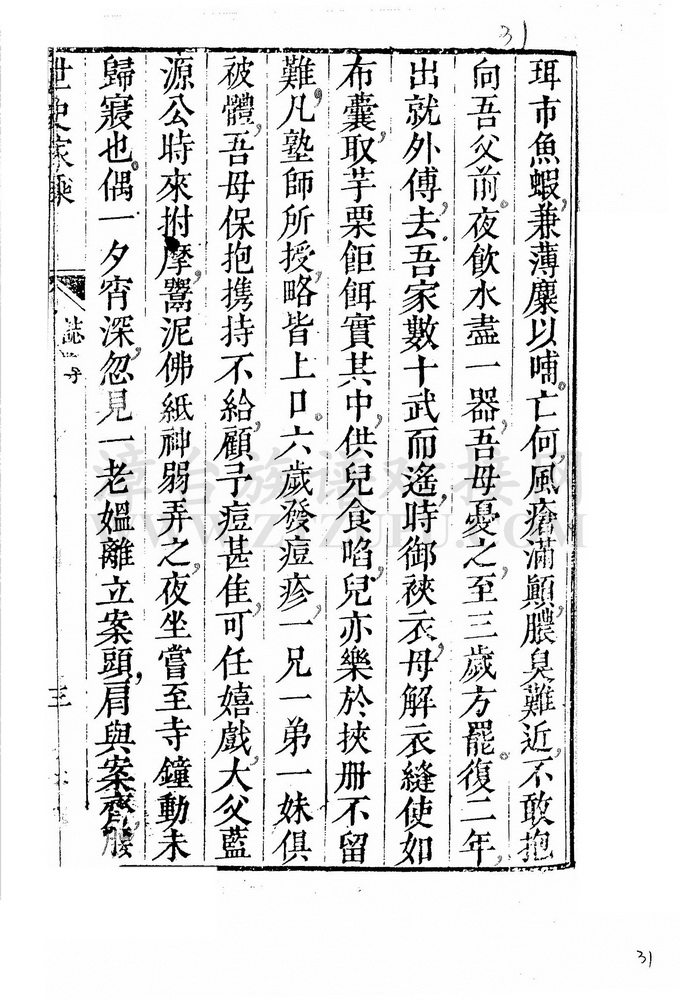 31
珥市魚蝦兼薄糜以哺亡何風瘡滿顛膿臭難近不敢抱
向吾父前夜飲水盡一器吾母憂之至三歲方罷復二年
出就外傅去吾家數十武而遙時御裌衣母解衣縫使如
布囊取芋栗飷餌實其中供兒食啗兒亦樂於挾冊不留
難凡塾師所授略皆上口六歲發痘疹一兄一弟一妹俱
被體吾母保抱携持不給顧予痘甚隹可任嬉戲大父藍
源公時來拊摩鬻泥佛紙神弱弄之夜坐嘗至寺鐘動未
歸寢也偶一夕宵深忽見一老媼離立案頭肩與案齊腰
世史家乘
誌
三
漳台族谱对接网
31